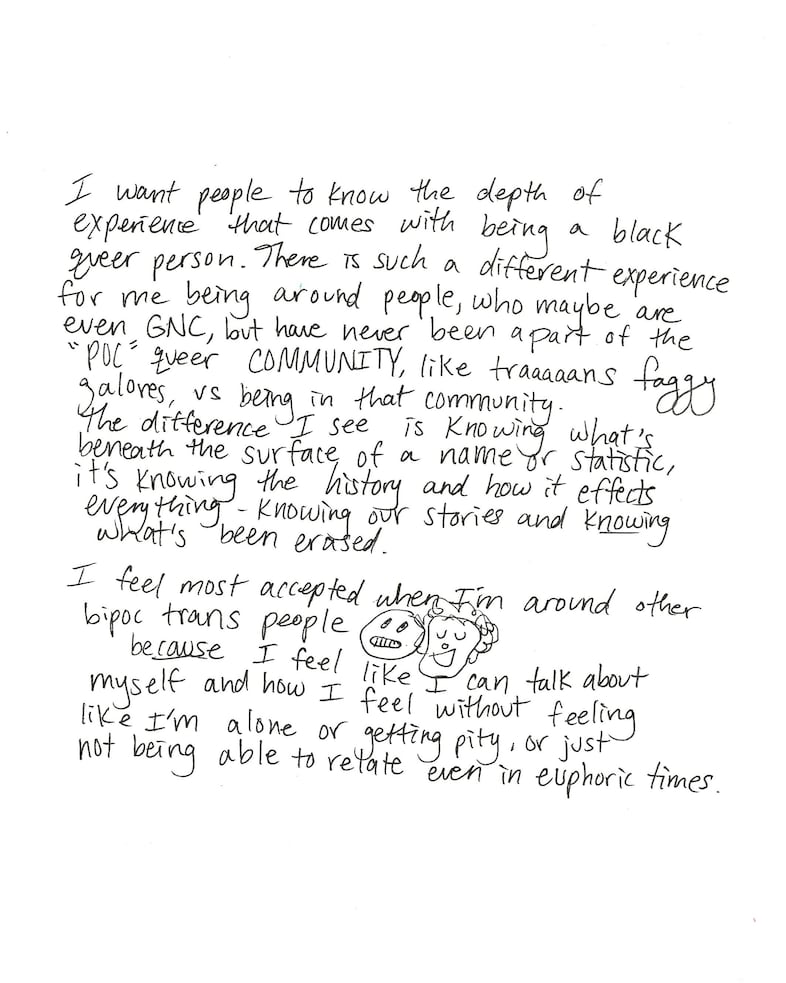 I want people to know the depth of
experience that comes with being a black
queer person. There is such a different experience
for me being around people, who maybe are
even GNC, but have never been apart of the
"POC" queer COMMUNITY, like traaaaans faggy
galores, vs being in that community.
The difference I see is knowing what's
beneath the surface of a name or statistic,
it's knowing the history and how it effects
everything - knowing our stories and knowing
what's been erased.
I feel most accepted when I'm around other
bipoc trans people
because I feel like I can talk about
myself and how I feel without feeling
like I'm alone or getting pity, or just
not being able to relate even in euphoric times.